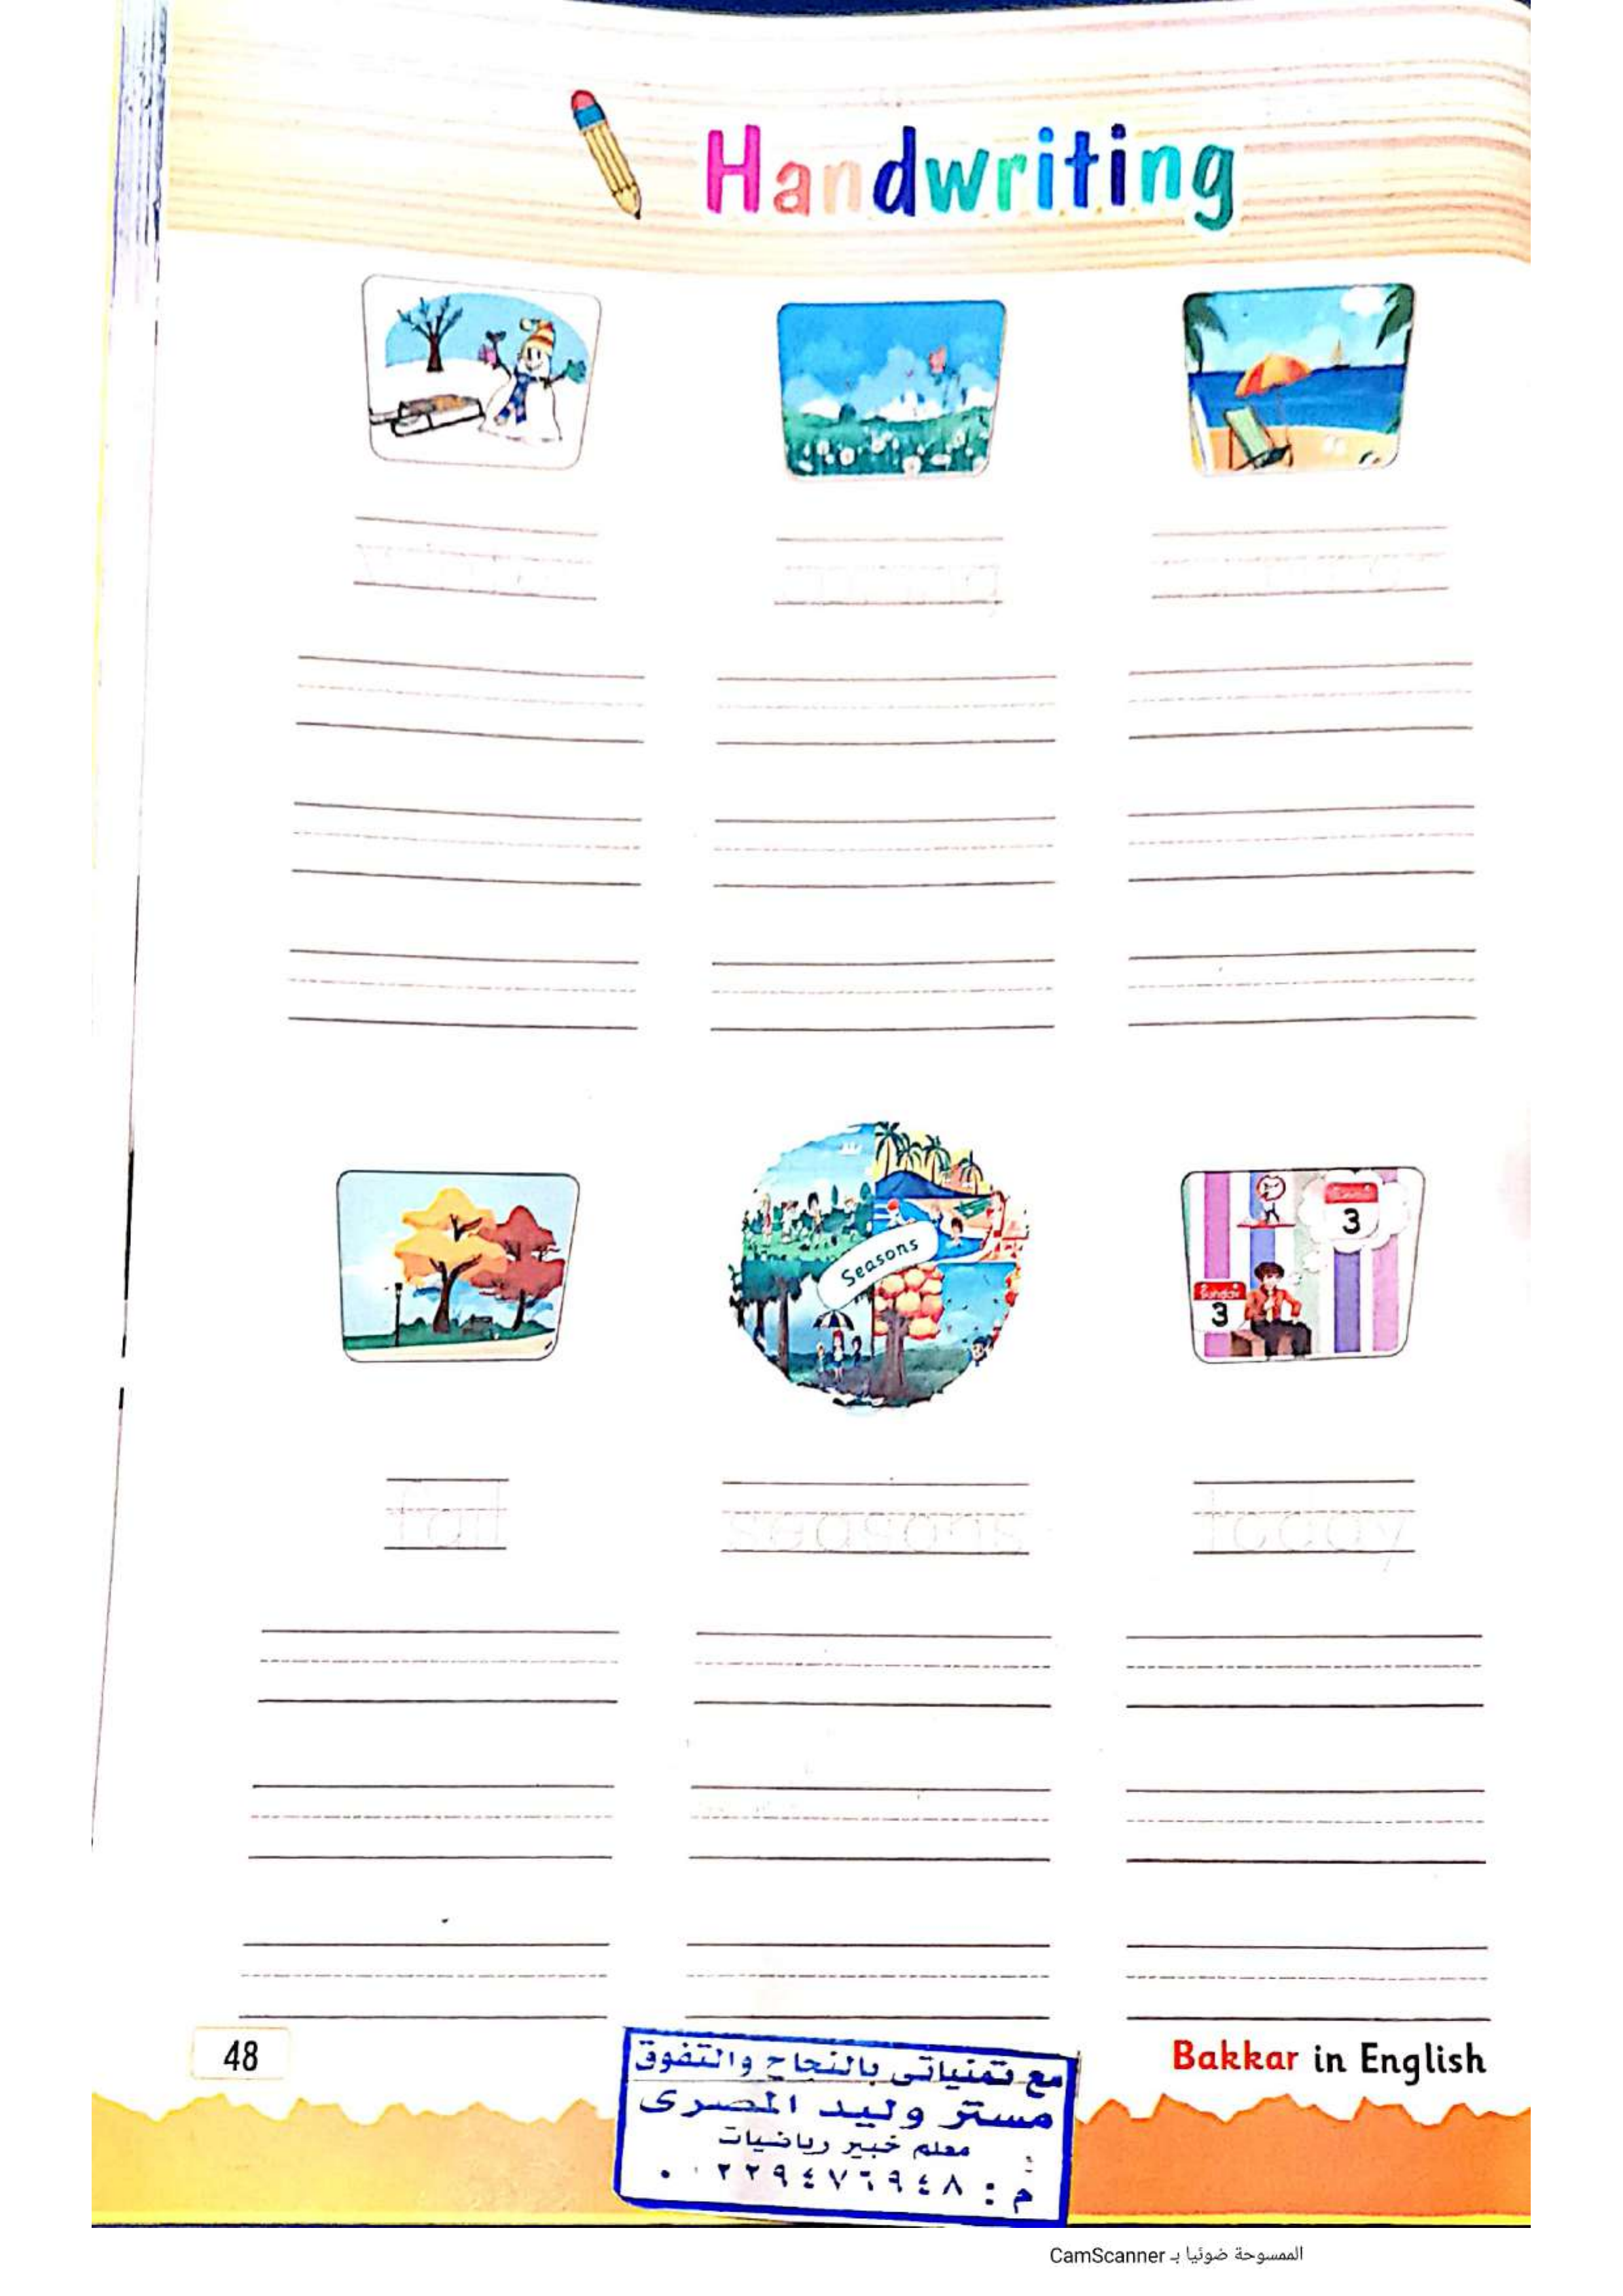 Handwriting
Seasons
Sunday
3
3
fall
seasons
today
48
Bakkar in English
مع تمنياتى بالنجاح والتفوق
مستر وليد المصرى
معلم خبير رياضيات
الممسوحة ضوئيا بـ CamScanner